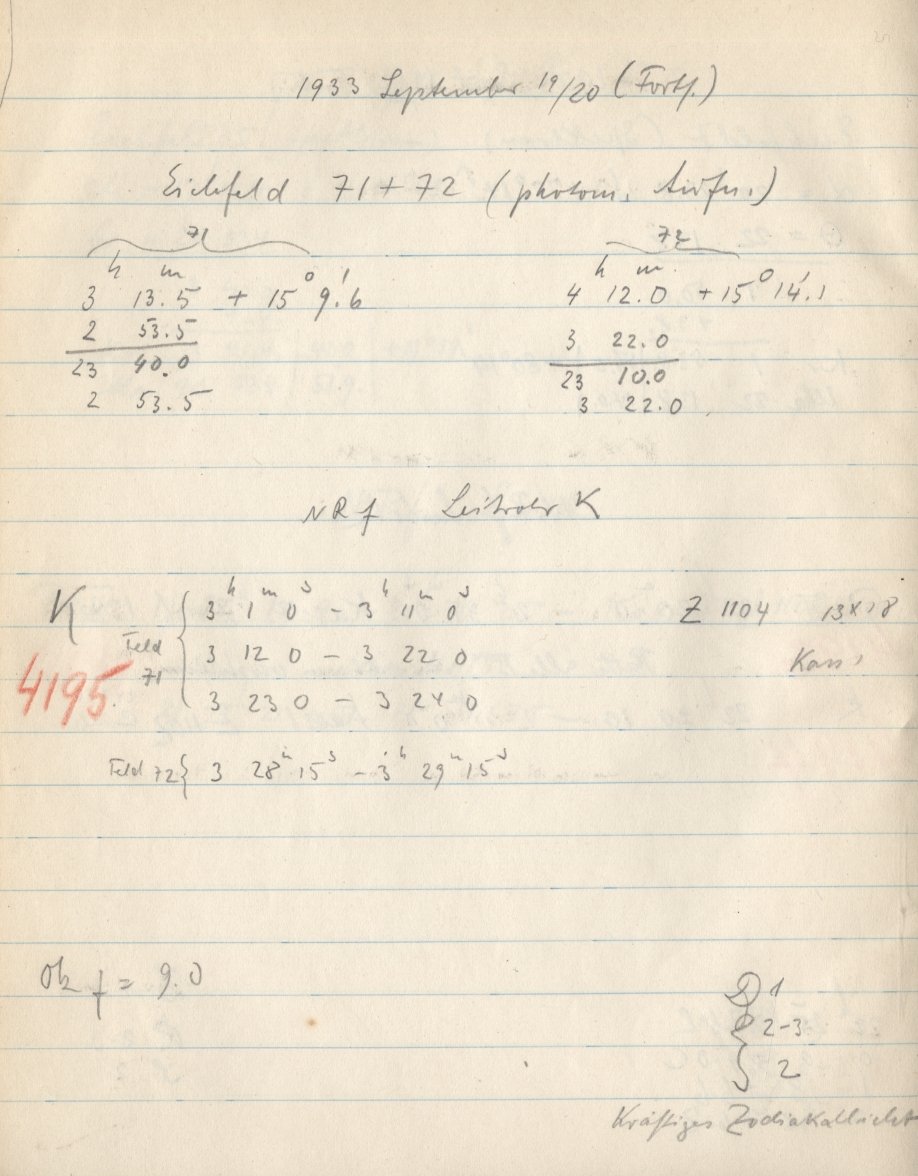 1933 September 19/20 (Fortf.)
Eichfeld 71+72 (photom. Aufn.)
71 72
h m o ' h m o '
3 13.5 + 15 9.6 4 12.0 + 15 14.1
2 53.5 3 22.0
23 40.0 23 10.0
2 53.5 3 22.0
NRf Leitrohr K
K Feld 71 { 3h 1m 0s – 3h 11m 0s Z 1104 13x18
3 12 0 – 3 22 0 Kass.
4195 3 23 0 – 3 24 0
Feld 72 { 3 28m 15s – 3h 29m 15s
Ok f = 9.0
D 1
2-3
2
Kräftiges Zodiakallicht